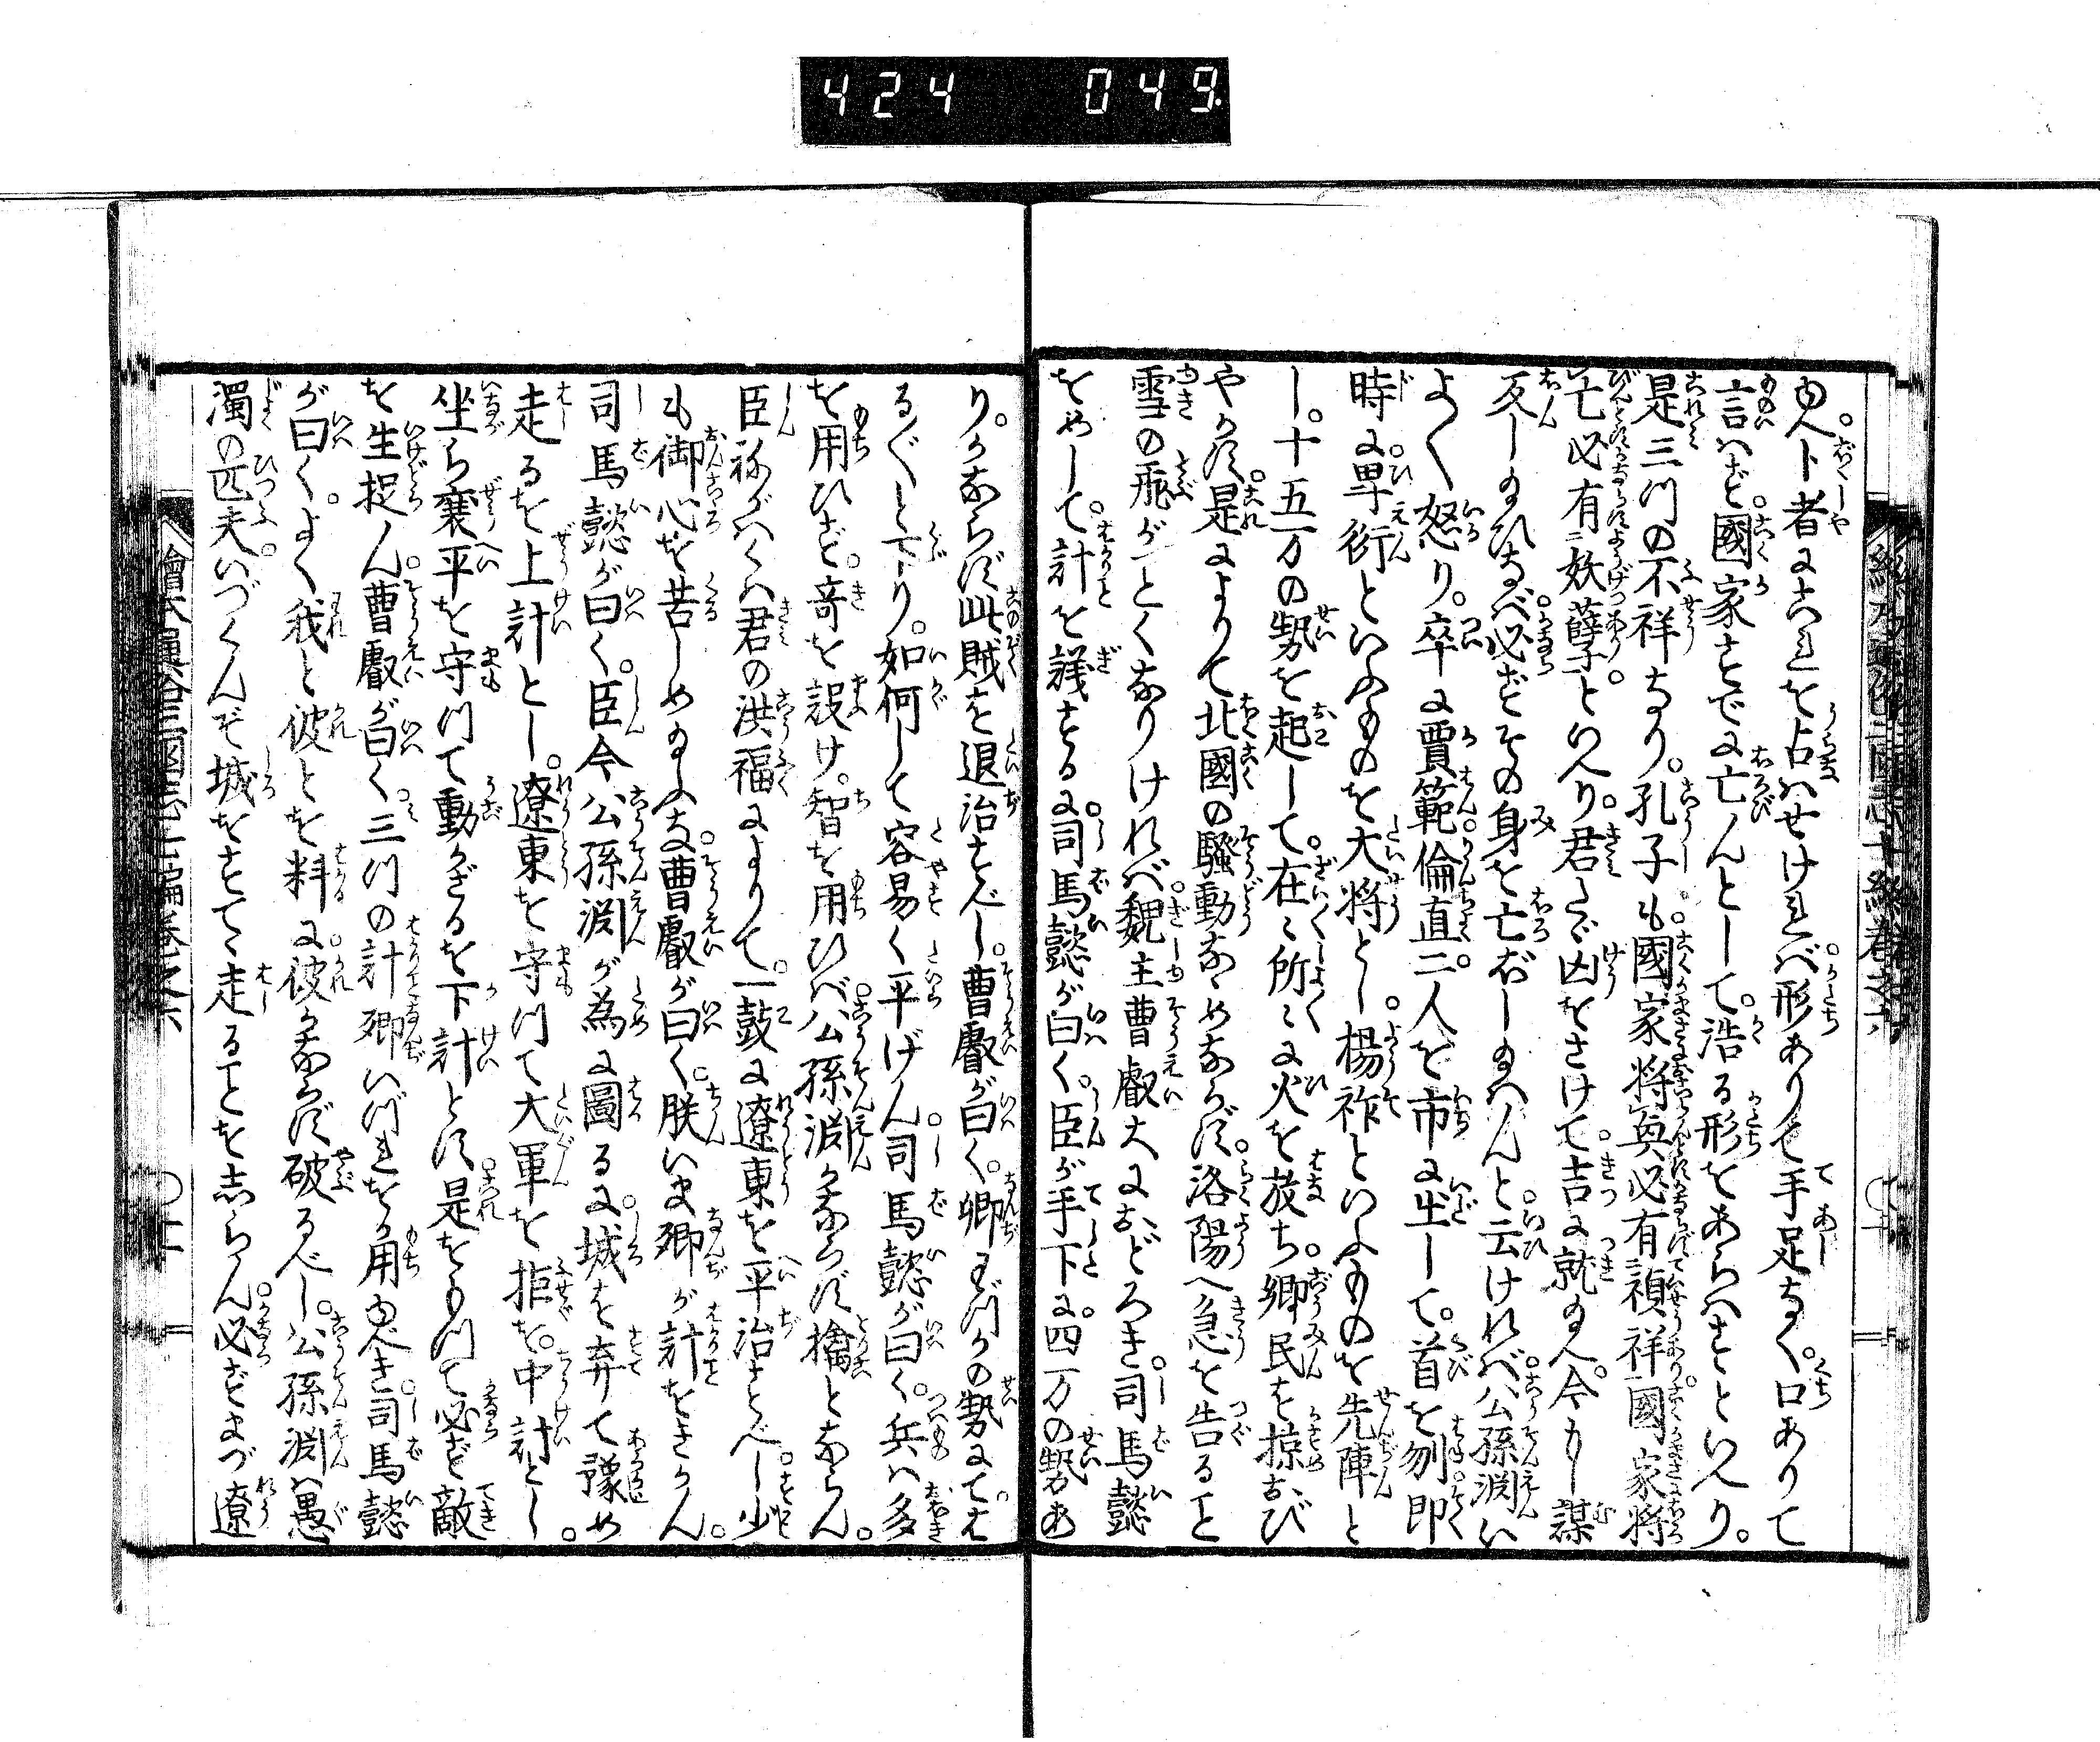 424 049
ゆへ。卜者にこれを占はせければ。形ありて手足なく。口ありて
言はず。國家すでに亡んとして。浩る形をあらはすといへり。
是三つの不祥なり。孔子も。國家将興必有禎祥國家将
亡必有妖孽といへり。君たゞ凶をさけて。吉に就給へ。今もし謀
反し給ひなば。必ずその身を亡ぼし給はんと。云ければ。公孫淵い
よ〱怒り。卒に賈範。倫直二人を市に出して。首を刎。即
時に。卑衍といふものを大将とし。楊祚といふものを先陣と
し。十五万の勢を起して。在〻所〻に火を放ち。郷民を掠おび
やかす。是によりて北國の騒動なゝめならず。洛陽へ急を告ること
雪の飛がごとくなりければ。魏主曹叡大におどろき。司馬懿
をめして。計を議するに。司馬懿が曰く。臣が手下に。四万の勢あ
り。かならず此賊を退治すべし。曹叡が曰く。卿わづかの勢にて。は
るばると下り。如何して容易く平げん。司馬懿が曰く。兵は多
を用ひず。奇を設け。智を用ひば。公孫淵かならず擒とならん。
臣ねがはくは君の洪福によりて。一鼓に遼東を平治すべし。少
も御心を苦しめ給ふな。曹叡が曰く。朕いま卿が計をきかん。
司馬懿が曰く。臣今公孫淵が為に圖るに。城を弃て豫め
走るを上計とし。遼東を守つて大軍を拒を。中計とし。
坐ら襄平を守つて動かざるを下計とす。是をもつて必ず敵
を生捉ん。曹叡が曰く。三つの計。卿いづれをか用ゆべき。司馬懿
が曰く。よく我と彼とを料に。彼かならず破るべし。公孫淵は愚
濁の匹夫。いづくんぞ城をすてゝ走ることを志らん。必ずまづ遼
繪本通俗三國志七編巻之六